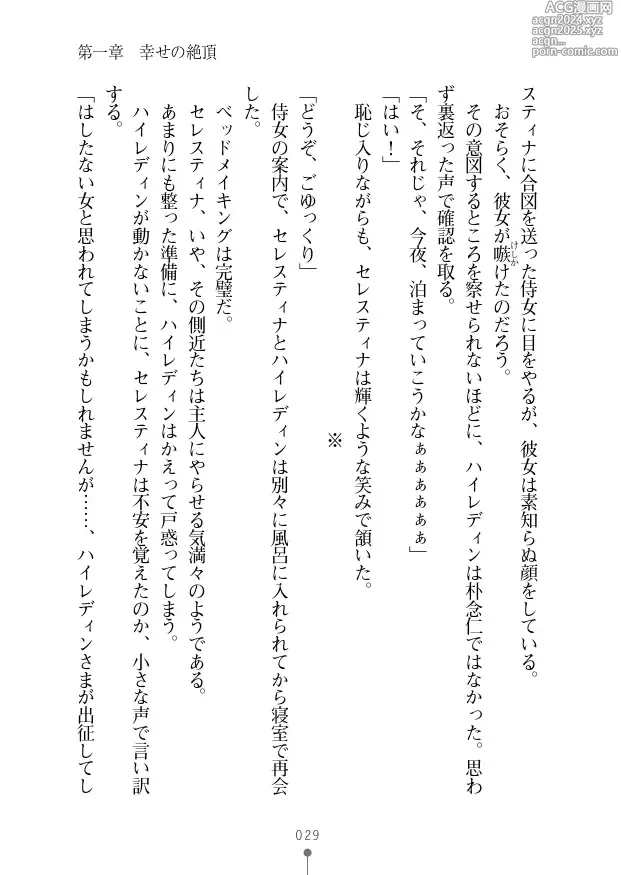 第一章　幸せの絶頂
スティナに合図を送った侍女に目をやるが、彼女は素知らぬ顔をしている。
おそらく、彼女が嗾けたのだろう。
けしか
その意図するところを察せられないほどに、ハイレディンは朴念仁ではなかった。思わ
ず裏返った声で確認を取る。
「そ、それじゃ、今夜、泊まっていこうかなぁぁぁぁぁぁ」
「はい！」
恥じ入りながらも、セレスティナは輝くような笑みで頷いた。
※
「どうぞ、ごゆっくり」
侍女の案内で、セレスティナとハイレディンは別々に風呂に入れられてから寝室で再会
した。
ベッドメイキングは完璧だ。
セレスティナ、いや、その側近たちは主人にやらせる気満々のようである。
あまりにも整った準備に、ハイレディンはかえって戸惑ってしまう。
ハイレディンが動かないことに、セレスティナは不安を覚えたのか、小さな声で言い訳
する。
「はしたない女と思われてしまうかもしれませんが……、ハイレディンさまが出征してし
029
ACG18.MOE
acgn2024.xyz
acgn2025.xyz
porn-comic.com